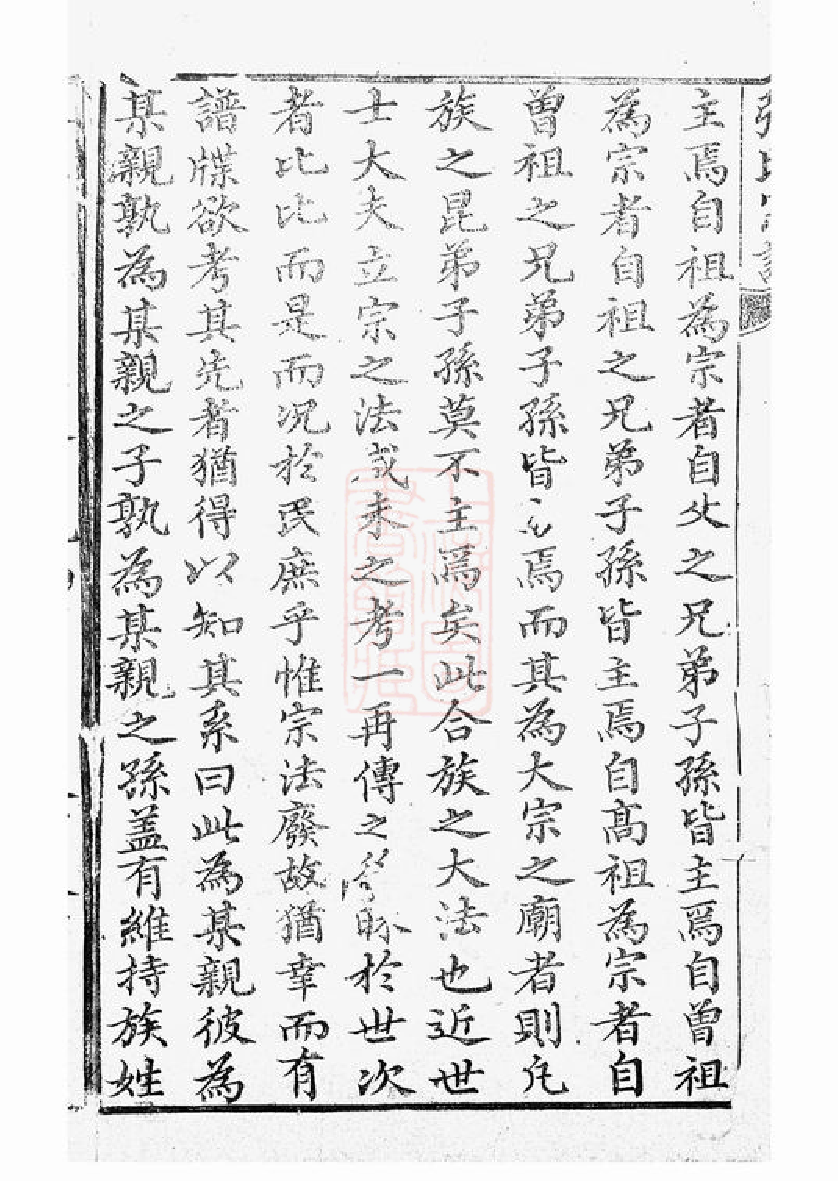 主焉自祖為宗者自父之兄弟子孫皆主焉自曽祖
為宗者自祖之兄弟子孫皆主焉自髙祖為宗者自
曽祖之兄弟子孫皆主焉而其為大宗之廟者則凡
族之昆弟子孫莫不主焉矣此合族之大法也近世
士大夫立宗之法或未之考一再傳之後昧於世次
者比比而是而况於民庶乎惟宗法廢故猶幸而有
譜牒欲考其先者猶得以知其系曰此為某親彼為
某親孰為某親之子孰為某親之孫盖有維持族姓